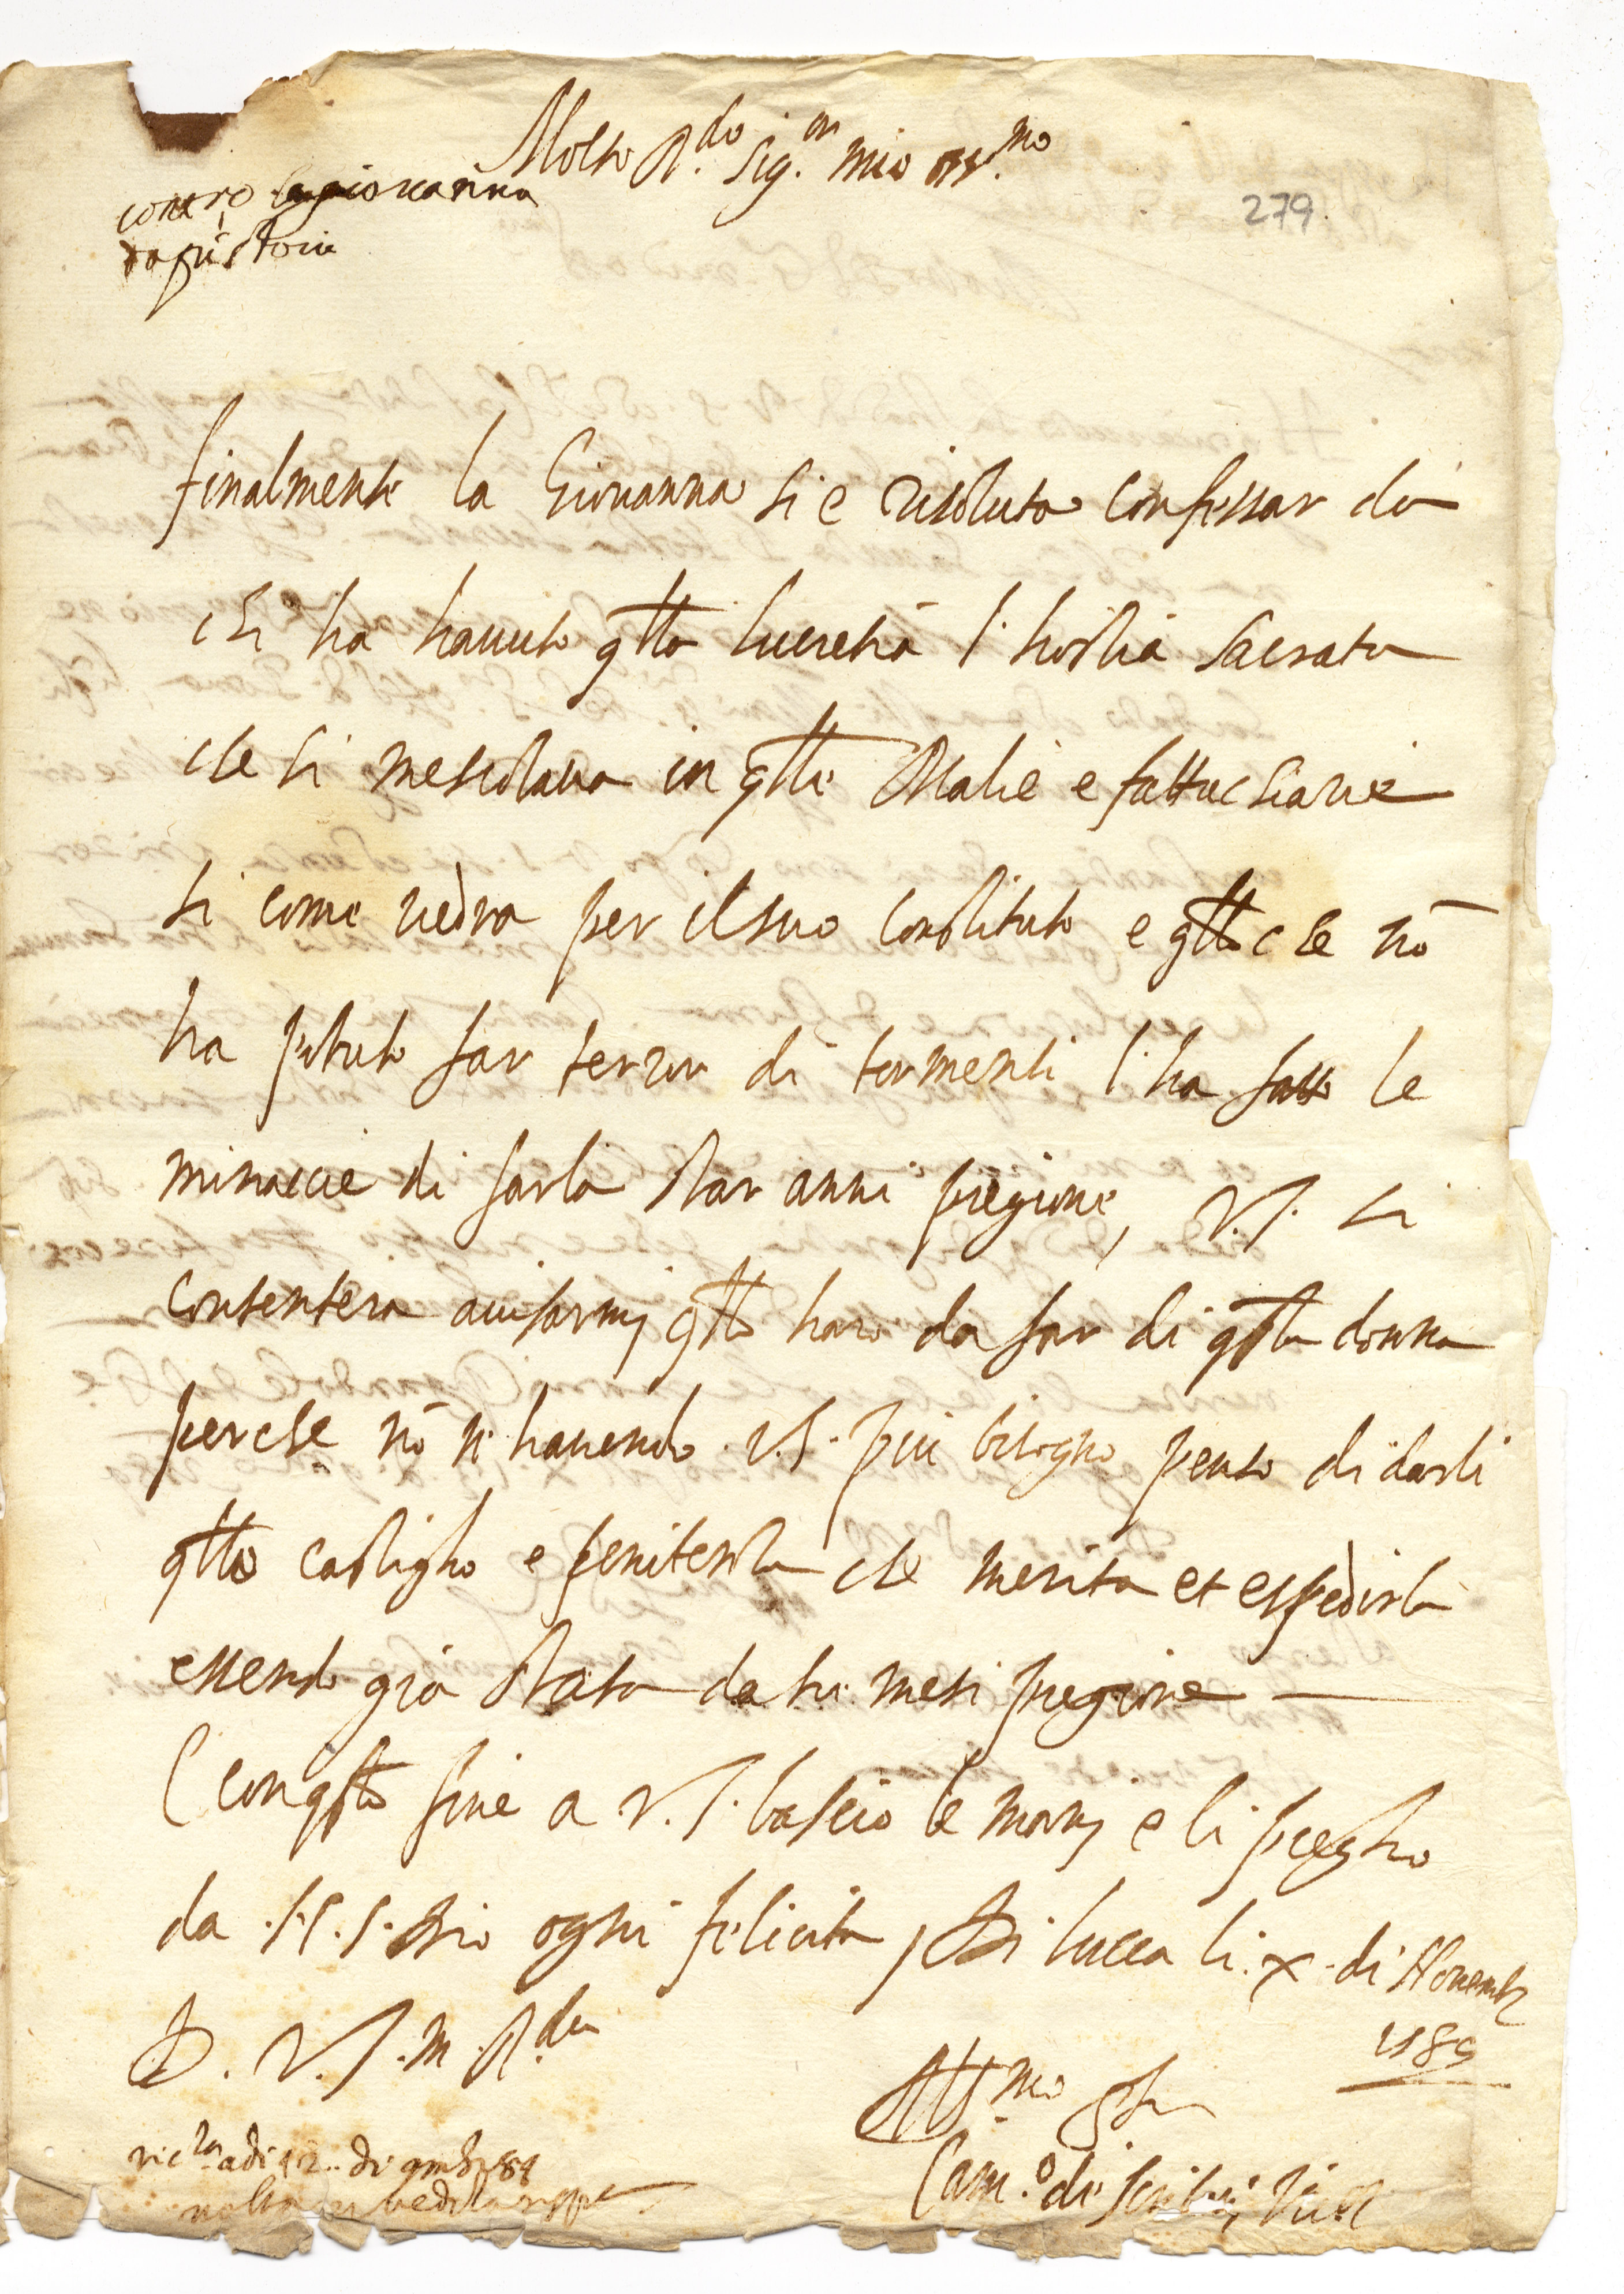 Molto R.do Sig.or mio oss.mo
contro la giovanna
da pistoia
279
finalmente la Giovanna si e risoluta confessar da
chi ha havuto qlla lucretia l'hostia sacrata
che si mescolava in qlle Malie e fattucciarie
si come vedra per il suo constituto e qllo che nō
ha potuto far terror di tormenti l'ha fatto le
minaccie di farla star anni pregione, V.S. si
contentera avisarmj qllo haro da far di qsta donna
perche nō n'havendo V.S. piu bisogno penso di darli
qllo castigho e penitentia che merita et espedirla
essendo già stata da tre mesi pregione
Con qsto fine a V.S. bascio le manj e li pregho
da N.S. Dio ogni felicita, Di lucca li. x. di Novemb
1589
D. V.S. m. R.da
Aff.mo
Cam.o di
ric.ta adi 12. di 9mb 89